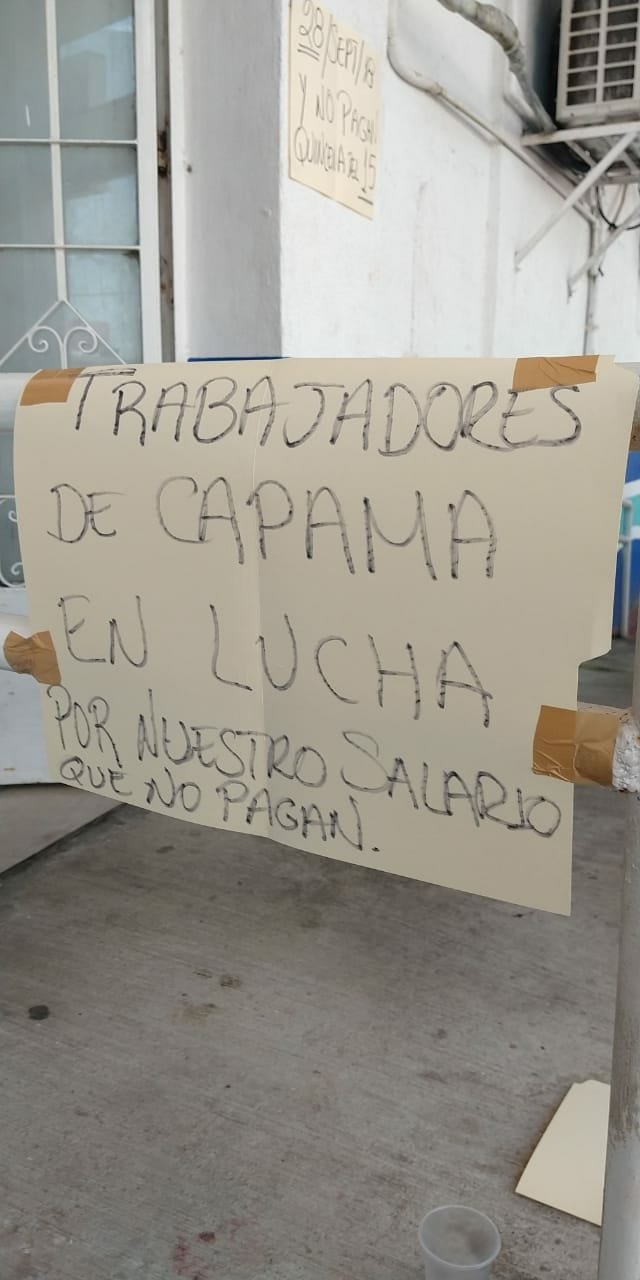 28/SEPT/18
Y NO PAGAN
QUINCENA DEL 15
TRABAJADORES
DE CAPAMA
EN LUCHA
POR NUESTRO SALARIO
QUE NO PAGAN.